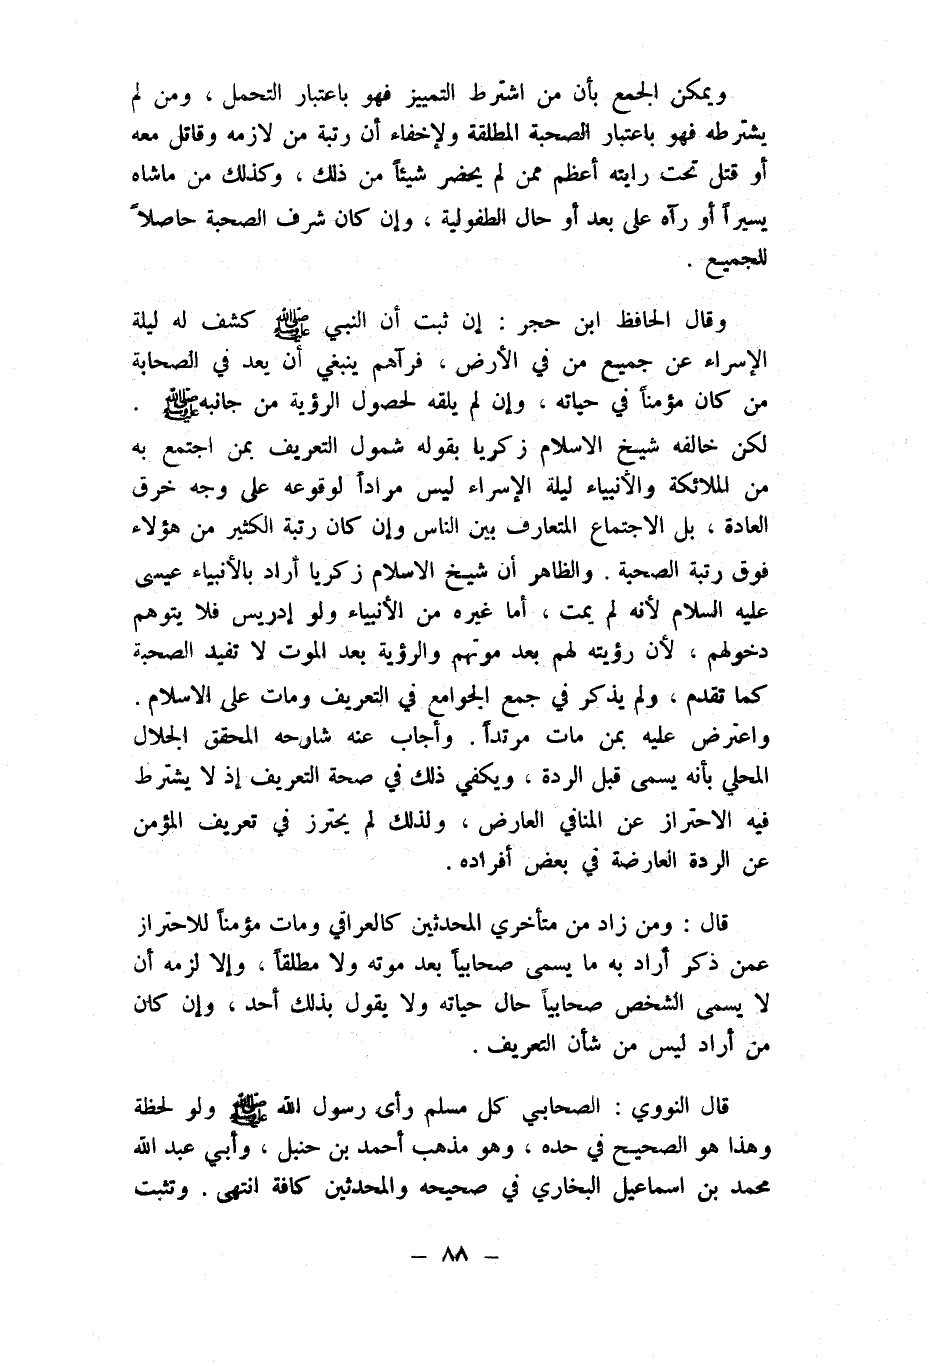 ويمكن الجمع بأن من اشترط التمييز فهو باعتبار التحمل ، ومن لم
يشترطه فهو باعتبار الصحبة المطلقة ولإخفاء أن رتبة من لازمه وقاتل معه
أو قتل تحت رايته أعظم ممن لم يحضر شيئاً من ذلك ، وكذلك من ماشاه
يسيراً أو رآه على بعد أو حال الطفولية ، وإن كان شرف الصحبة حاصلاً
للجميع .
وقال الحافظ ابن حجر : إن ثبت أن النبي ﷺ كشف له ليلة
الإسراء عن جميع من في الأرض ، فرآهم ينبغي أن يعد في الصحابة
من كان مؤمناً في حياته ، وإن لم يلقه لحصول الرؤية من جانبه ﷺ .
لكن خالفه شيخ الاسلام زكريا بقوله شمول التعريف بمن اجتمع به
من الملائكة والأنبياء ليلة الإسراء ليس مراداً لوقوعه على وجه خرق
العادة ، بل الاجتماع المتعارف بين الناس وإن كان رتبة الكثير من هؤلاء
فوق رتبة الصحبة . والظاهر أن شيخ الاسلام زكريا أراد بالأنبياء عيسى
عليه السلام لأنه لم يمت ، أما غيره من الأنبياء ولو إدريس فلا يتوهم
دخولهم ، لأن رؤيته لهم بعد موتهم والرؤية بعد الموت لا تفيد الصحبة
كما تقدم ، ولم يذكر في جمع الجوامع في التعريف ومات على الاسلام .
واعترض عليه بمن مات مرتداً . وأجاب عنه شارحه المحقق الجلال
المحلي بأنه يسمى قبل الردة ، ويكفي ذلك في صحة التعريف إذ لا يشترط
فيه الاحتراز عن المنافي العارض ، ولذلك لم يحترز في تعريف المؤمن
عن الردة العارضة في بعض أفراده .
قال : ومن زاد من متأخري المحدثين كالعراقي ومات مؤمناً للاحتراز
عمن ذكر أراد به ما يسمى صحابياً بعد موته ولا مطلقاً ، وإلا لزمه أن
لا يسمى الشخص صحابياً حال حياته ولا يقول بذلك أحد ، وإن كان
من أراد ليس من شأن التعريف .
قال النووي : الصحابي كل مسلم رأى رسول الله ﷺ ولو لحظة
وهذا هو الصحيح في حده ، وهو مذهب أحمد بن حنبل ، وأبي عبد الله
محمد بن اسماعيل البخاري في صحيحه والمحدثين كافة انتهى . وتثبت
— ٨٨ —